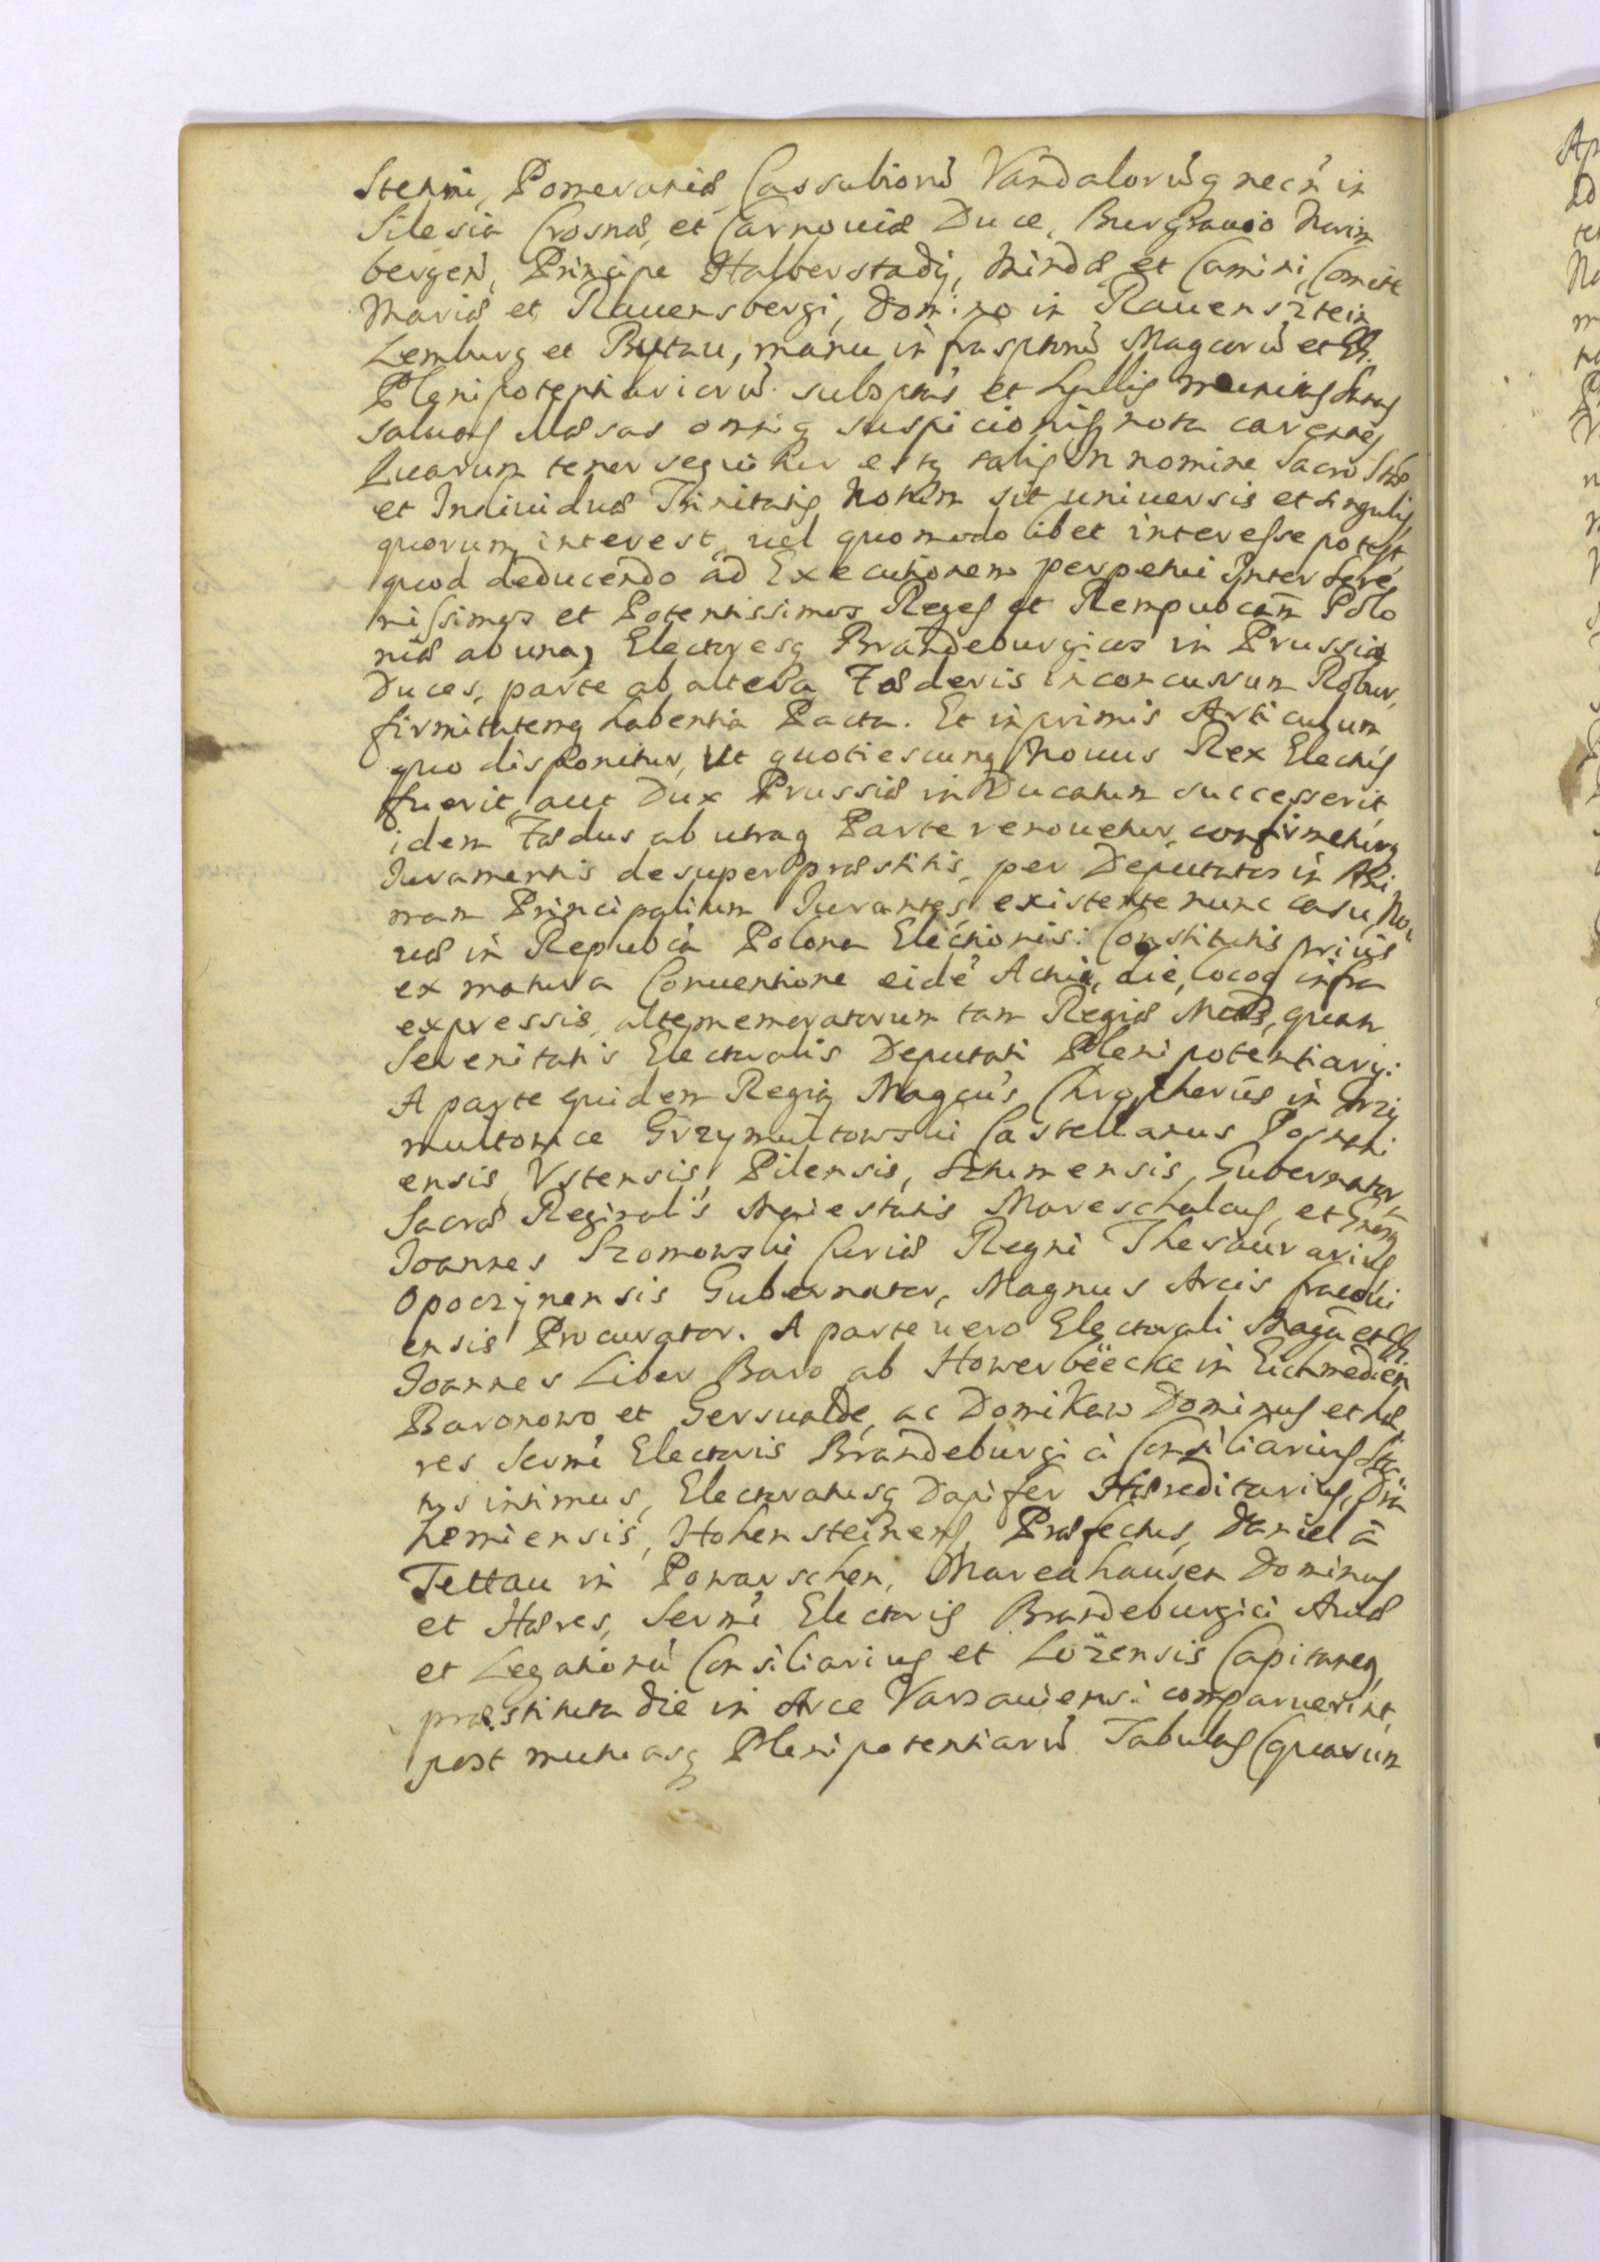 Stettini, Pomeraniæ Cassubiorũ Vandalorũq necñ in
Silesia Crosnæ, et Carnouiæ Duce, Burgrauio Norim
bergeñ, Principe Halberstadij, Mindæ et Camini, Comite
Marciæ et Rauensbergi, Domino in Rauensztein
Lemburg et Bytau, manu infrasptorũ Magcorũ et GG.
Plenipotentiariorũ subsptas et Sgillis munitas sanas
saluas illæsas omniq suspicionis nota carentes
Quarum tenor sequitur estq talis In nomine Sacro Stæ
et Indiuiduæ Trinitatis Notum sit uniuersis et singulis
quorum interest, uel quomodolibet interesse potest
quod deducendo ad Executionem perpetui Inter Sere
nissimos et Potentissimos Reges et Rempubcam̃ Polo
niæ ab una, Electoresq Brandeburgicos in Prussia
Duces, parte ab altera Fœderis inconcussum Robur,
firmitatemq habentia Pacta. Et inprimis Articulum
quo disponitur, Ut quotiescunq Nouus Rex Electus
fuerit, aut Dux Prussiæ in Ducatum successerit,
idem Fœdus ab utraq Parte renouetur, confirmeturq
Iuramentis desuper præstitis, per Deputatos in Ani
mam Principalium Iurantes existente nunc casu No
uæ in Repubca Polona Electionis: Constitutis prius
ex matura Conuentione eidẽ Actui, die, locoq infra
expressis, altememoratorum tam Regiæ Mttis, quam
Serenitatis Electoralis Deputati Plenipotentiarij:
A parte quidem Regia Magcus Chrptherus in Grzy
multowice Grzymultowski Castellanus Posnani
ensis, Ustensis, Pilensis, Sztumensis, Gubernator
Sacræ Reginalis Maiestatis Mareschalcus, et Gnosus
Joannes Szomowski Curiæ Regni Thesaurarius
Opoczynensis Gubernator, Magnus Arcis Cracoui
ensis Procurator. A parte uero Electorali Magci et GG.
Joannes Liber Baro ab Howerbëecke in Eichmedien
Baronowo et Gersualde, ac Domikaw Dominus et hæ
res Sermi Electoris Brandeburgici Consiliarius Sta
tus intimus, Electoratusq Dapifer Hæreditarius,
hemiensis, Hohensteinens, Præfectus, Daniel à
Tettau in Powarschen, Mareahausen Dominus
et Hæres, Sermi Electoris Brandeburgici Aulæ
et Legationũ Consiliarius et Lözensis Capitaneus,
præstituta die in Arce Varsauiensi comparuerint,
post mutuasq Plenipotentiarũ Tabulas (quarum